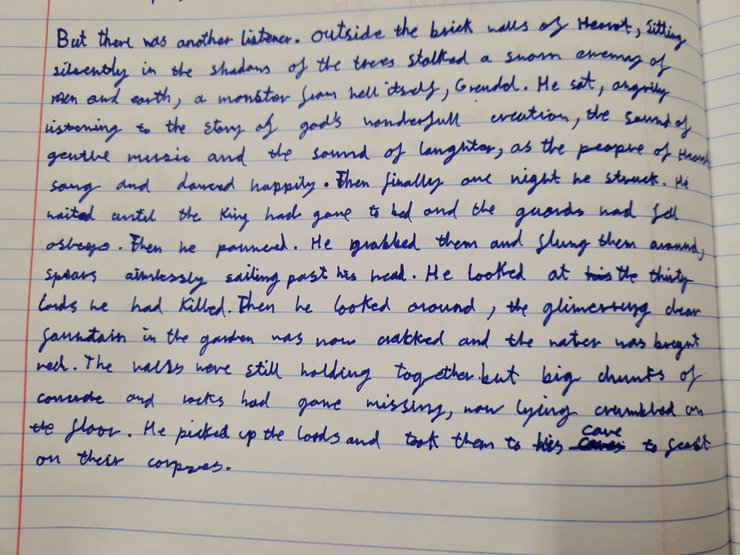 But there was another listener. Outside the brick walls of Heorot, sitting
silvently in the shadows of the trees stalked a sworn enemy of
men and earth, a monster from hell itself, Grendel. He sat, angrily
listening to the story of god's wonderfull creation, the sound of
gentle music and the sound of laughter, as the people of Heorot
sang and danced happily. Then finally one night he struck. He
waited until the King had gone to bed and the guards had fell
asleep. Then he pounced. He grabbed them and flung them around,
spears aimlessly sailing past his head. He looked at the thirty
lords he had killed. Then he looked around, the glimerring clear
fountain in the garden was now crakked and the water was bright
red. The walls were still holding together but big chunks of
concrete and rocks had gone missing, now lying crumbled on
the floor. He picked up the lords and took them to his cave to feast
on their corpses.